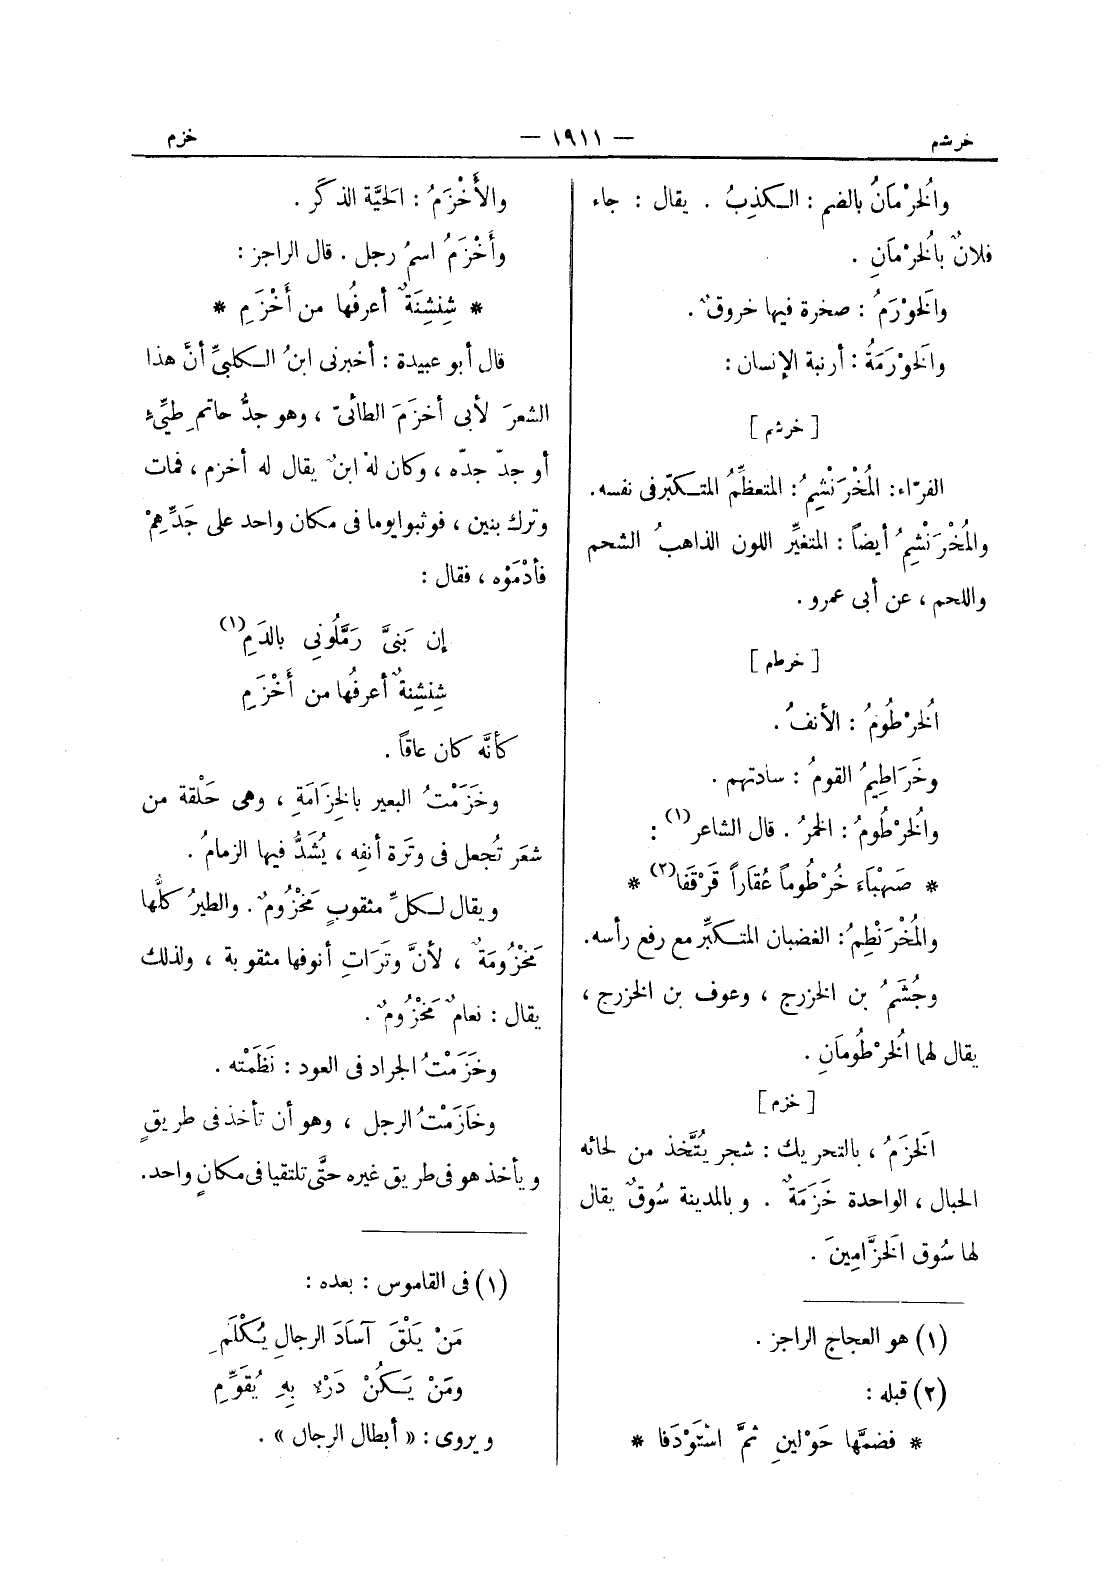 خرشم
— ١٩١١ —
خزم
والُخرْمَانُ بالضم : الكذِبُ . يقال : جاء
فلانٌ بالُخرْمَانِ .
والَخوْرَمُ : صخرة فيها خروقٌ .
والَخوْرَمَةُ : أرنبة الإنسان :
[ خرشم ]
الفرّاء : المُخْرَنْشِمُ : المتعظِّمُ المتكبّر فى نفسه .
والمُخْرَنْشِمُ أيضاً : المتغيِّر اللون الذاهبُ الشحم
واللحم ، عن أبى عمرو .
[ خرطم ]
الُخرْطُومُ : الأنفُ .
وخَرَاطِيمُ القومُ : سادتهم .
والُخرْطُومُ : الخمرُ . قال الشاعر (١) :
* صَهْبَاءَ خُرْطُوماً عُقَاراً قَرْقَفَا (٢) *
والمُخْرَنْطِمُ : الغضبان المتكبِّر مع رفع رأسه .
وجُشَمُ بن الخزرج ، وعوف بن الخزرج ،
يقال لهما الُخرْطُومَانِ .
[ خزم ]
الَخزَمُ ، بالتحريك : شجر يُتَّخذ من لحائه
الحبال ، الواحدة خَزَمَةٌ . وبالمدينة سُوقٌ يقال
لها سُوق الَخزَّامِينَ .
(١) هو العجاج الراجز .
(٢) قبله :
* فضمَّها حَوْلينِ ثمَّ اسْتَوْدَفَا *
والأَخْزَمُ : الحيَّة الذكَر .
وأَخْزَمُ اسمُ رجل . قال الراجز :
* شِنشِنَةٌ أعرفُها من أَخْزَمِ *
قال أبو عبيدة : أخبرنى ابنُ الكلبيِّ أنَّ هذا
الشعرَ لأبى أخزَمَ الطائىّ ، وهو جدُّ حاتم طيِّءٍ
أو جدّ جدّه ، وكان لهْ ابنٌ يقال له أخزم ، فمات
وترك بنين ، فوثبوا يوما فى مكان واحد على جَدِّهِمْ
فأدْمَوْه ، فقال :
إن بَنىَّ رَمَّلُونِي بالدَمِ (١)
شِنشِنةٌ أعرفُها من أَخْزَمِ
كأنَّه كان عاقاً .
وخَزَمْتُ البعير بالخِزَامَةِ ، وهى حَلْقة من
شعَر تُجعل فى وتَرة أنفِه ، يُشَدُّ فيها الزمامُ .
ويقال لكلِّ مثقوبٍ مَخْزُومٌ . والطيرُ كلُّها
مَخْزُومَةٌ ، لأنَّ وتَرَاتِ أنوفها مثقوبة ، ولذلك
يقال : نعامٌ مَخْزُومٌ .
وخَزَمْتُ الجراد فى العود : نَظَمْته .
وخَازَمْتُ الرجل ، وهو أن تأخذ فى طريقٍ
ويأخذ هو فى طريق غيره حتَّى تلتقيا فى مكانٍ واحد .
(١) فى القاموس : بعده :
مَنْ يَلْقَ آسَادَ الرجالِ يُكْلَمِ
ومَنْ يَكُنْ دَرْءٌ بِهِ يُقَوَّمِ
ويروى : « أبطال الرجال » .